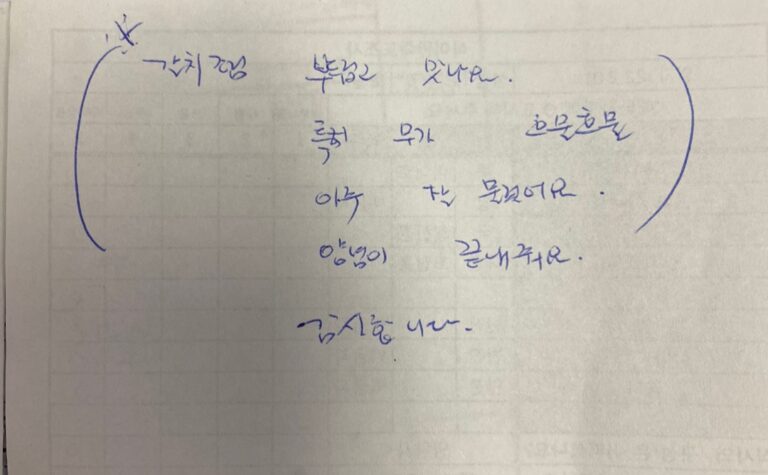 ※ 갈치조림 부드럽고 맛나요.
특히 무가 흐물흐물
아주 잘 물렀어요.
양념이 끝내줘요.
감사합니다.